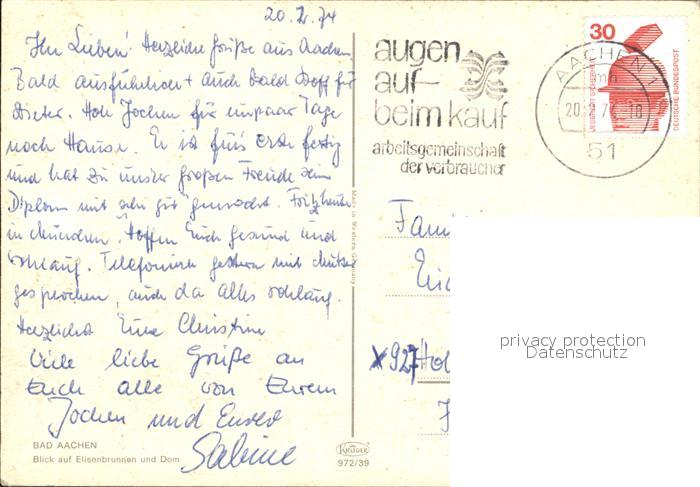 20.2.74
Ihr Lieben! Herzliche Grüße aus Aachen.
Bald ausführlicher auch bald Stoff für
Dieter. Hole Jochen für ein paar Tage
nach Hause. Er ist fürs erste fertig
und hat zu unser großen Freude sein
Diplom mit sehr gut gemacht. Fritz heute
in München. Hoffen Euch gesund und
wohlauf. Telefonisch gestern mit Mutter
gesprochen, auch da alles wohlauf.
Herzlichst Eure Christine
Viele liebe Grüße an
Euch alle von Eurem
Jochen und Eurer
Sabine
BAD AACHEN
Blick auf Elisenbrunnen und Dom
KRÜGER
972/39
Made in Western Germany
augen
auf-
beim kauf
arbeitsgemeinschaft
der verbraucher
AACHEN 1
51
30
JEDERZEIT SICHERHEIT
DEUTSCHE BUNDESPOST
Fami
x 927 Hol
privacy protection
Datenschutz